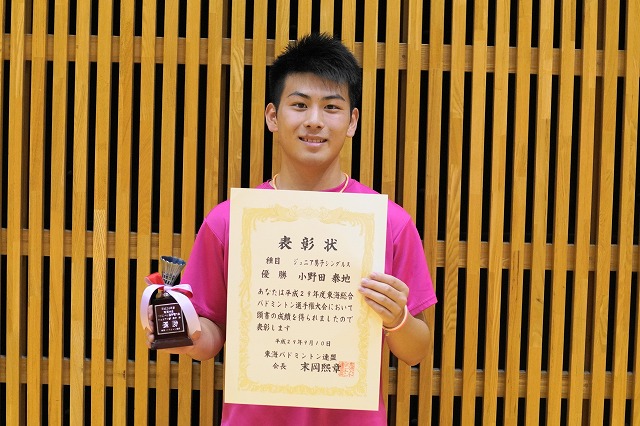 表彰状
種目　ジュニア男子シングルス
優勝　小野田　泰地
あなたは平成29年度東海総合
バドミントン選手権大会において
頭書の成績を得られましたので
表彰します
平成29年9月10日
東海バドミントン連盟
会長　末岡熙章